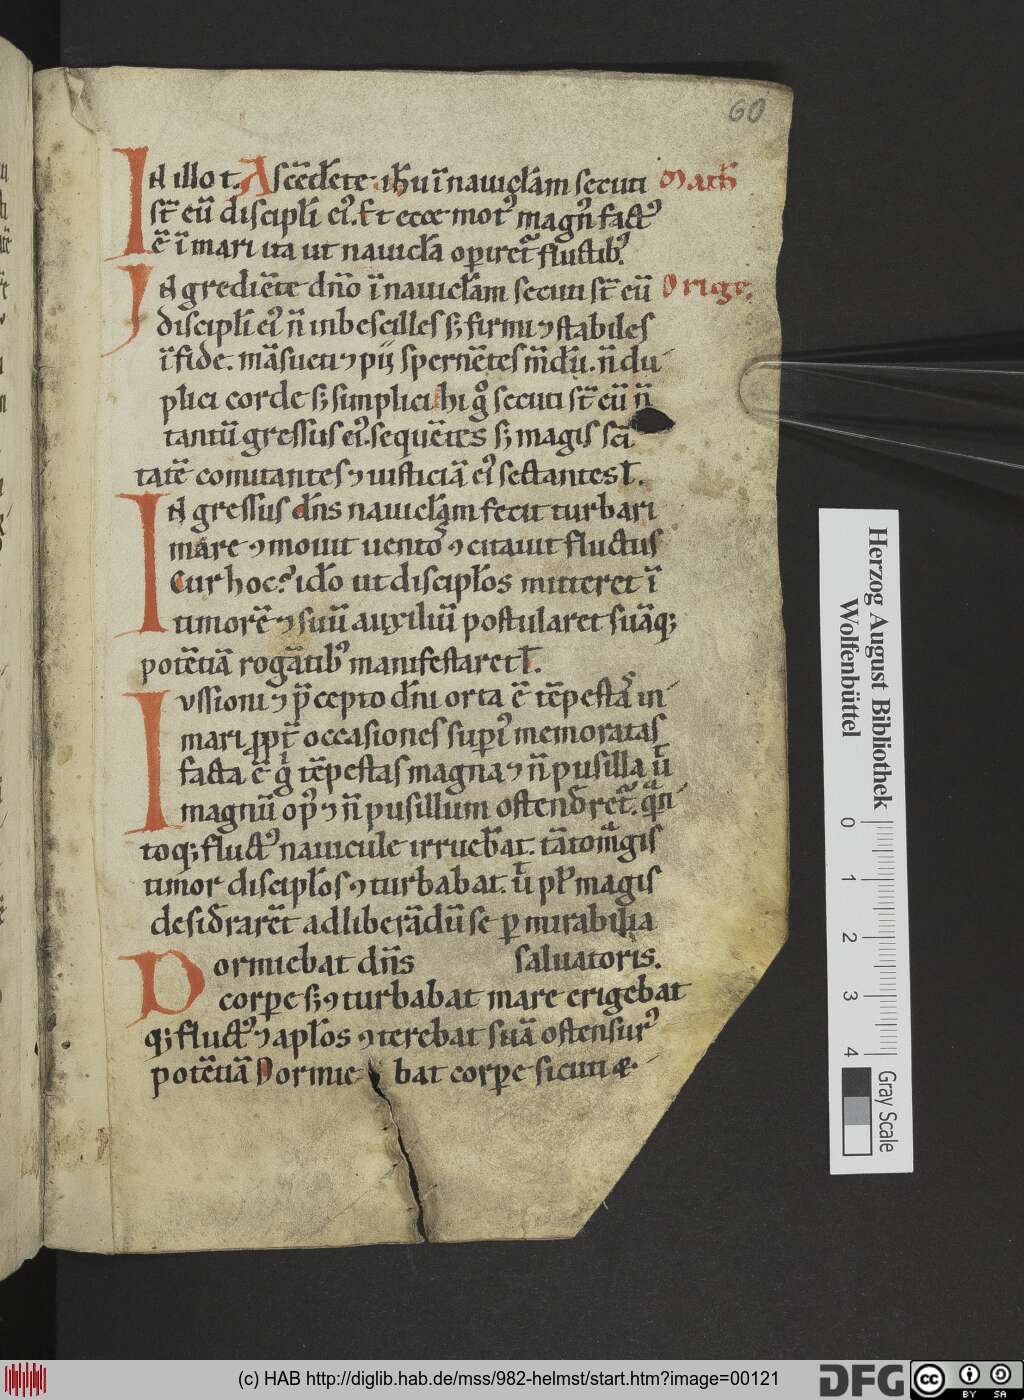 60
In illo t. Ascēdēte ihu ī nauiclam secuti Math
st eū discipli ei'. Et ecce mot' magn' fact'
ē ī mari ita ut nauicla operiret fluctib'.
Ingrediēte dno ī nauiclam secuti st eū Orige.
discipli ei' n̄ inbescilles s; firmi ⁊ stabiles
ī fide. māsueti ⁊ pij spernētes mdū. n̄ du
plici corde s; simplici hi g° secuti st eū n̄
tantū gressus ei' sequētes s; magis sci
tatē comitantes ⁊ iusticiā ei' sectantes.
Ingressus dns nauiclam fecit turbari
mare ⁊ mouit uento' ⁊ citauit fluctus
Cur hoc? ido ut disciplos mitteret ī
timorē ⁊ suū auxiliū postularet suāq;
potētiā rogātib' manifestaret.
Iussioni ⁊ p̄cepto dni orta ē tēpesta' in
mari ppt occasiones superi' memoratas
facta ē g° tēpestas magna ⁊ n̄ pusilla ut
magnū op' ⁊ n̄ pusillum ostenderet. qan
toq; fluct' nauicule irruebat. tāto magis
timor disciplos ⁊ turbabat. ut pl' magis
desidrarēt ad liberādū se p mirabilia
Dormiebat dns saluatoris.
corpe s; ⁊ turbabat mare erigebat
q; fluct' ⁊ aplos ⁊ terebat suā ostensur'
potētiā Dormie bat corpe sicuti æ
Herzog August Bibliothek
Wolfenbüttel
0 1 2 3 4
Gray Scale
(c) HAB http://diglib.hab.de/mss/982-helmst/start.htm?image=00121
DFG
cc BY SA